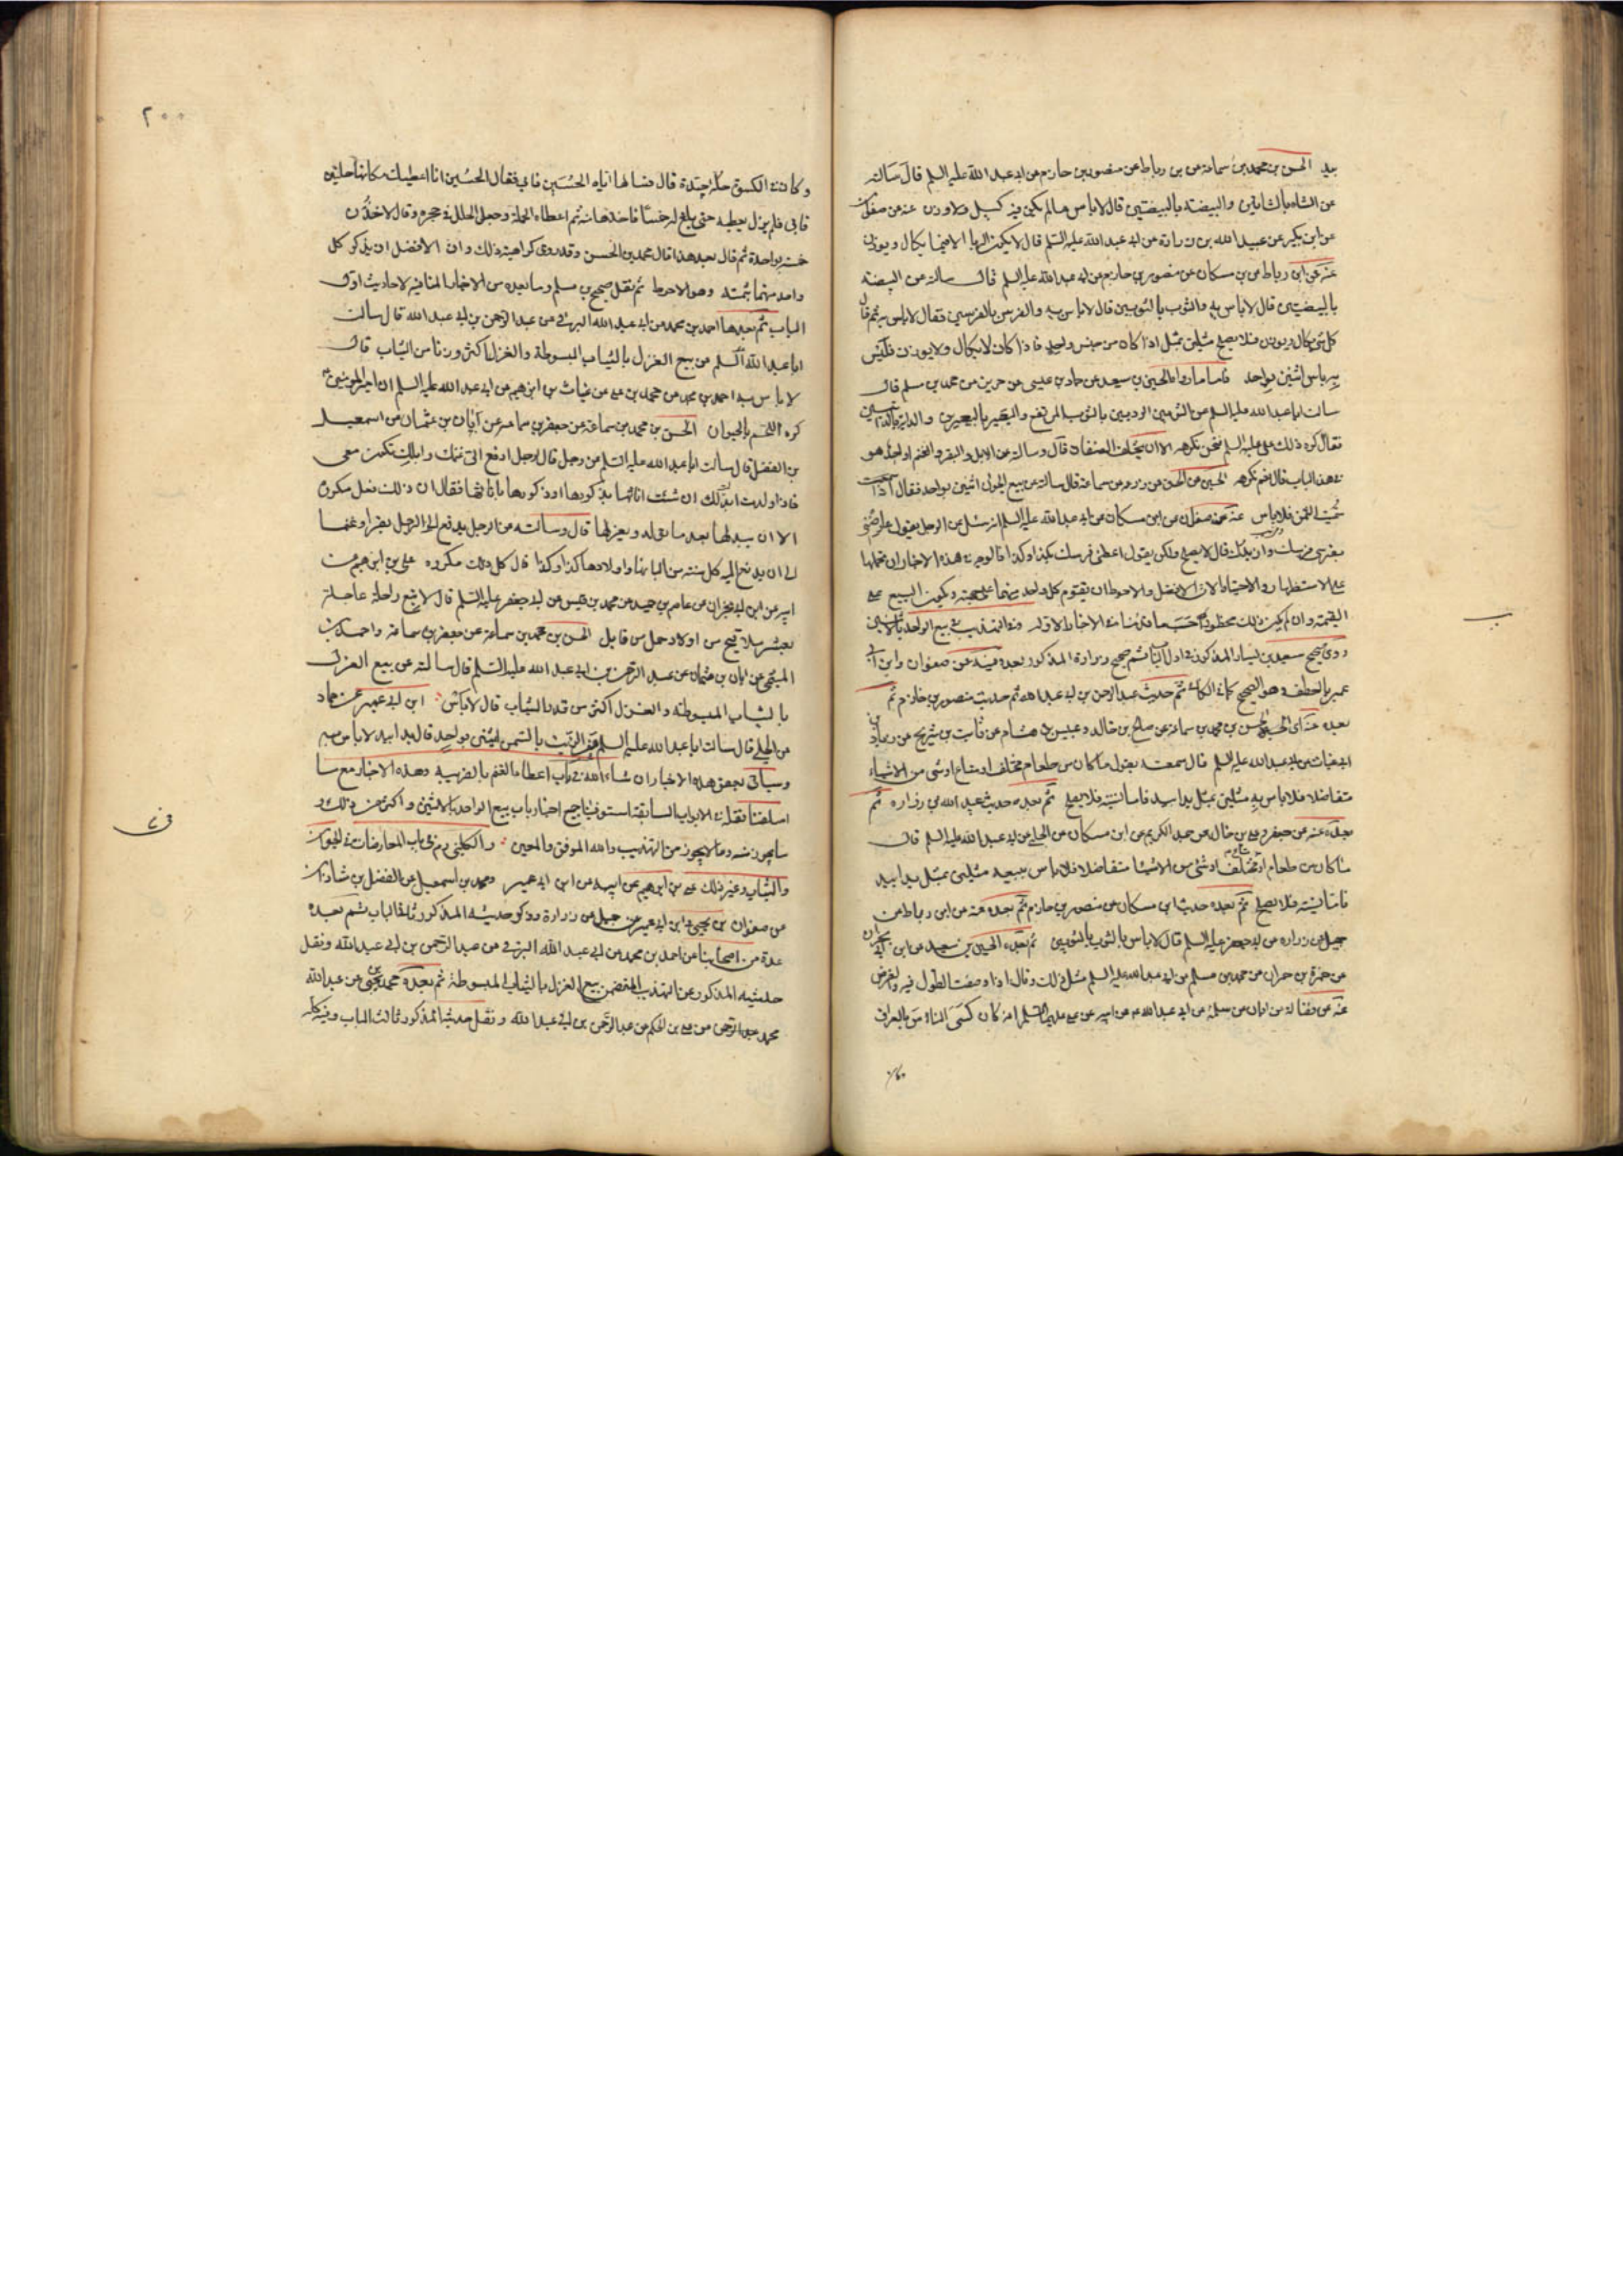 بيد الحسن بن محمد بن سماعة عن بن رباط عن منصور بن حازم عن ابي عبد الله عليه السلم قال سالته
عن الشاة بالشاتين والبيضة بالبيضتين قال لا باس ما لم يكن فيه كيل ولا وزن عنه عن صفوان
عن ابن بكير عن عبيد الله بن زرارة عن ابي عبد الله عليه السلم قال لا يكون الربا الا فيما يكال ويوزن
عنه عن ابن رباط عن بن مسكان عن منصور بن حازم عن ابي عبد الله عليه السلم قال سالته عن البيضة
بالبيضتين قال لا باس به والثوب بالثوبين قال لا باس به والفرس بالفرسين فقال لا باس به ثم قال
كل شي يكال او يوزن فلا يصلح مثلين بمثل اذا كان من جنس واحد فاذا كان لا يكال ولا يوزن فليس
به باس اثنين بواحد فاما ما رواه الحسين بن سعيد عن حماد بن عيسى عن حريز عن محمد بن مسلم قال
سالت ابا عبد الله عليه السلم عن الثوبين الرديين بالثوب المرتفع والبعير بالبعيرين والدابة بالدابتين
فقال كره ذلك علي عليه السلم فنحن نكرهه الا ان يختلف الصنفان قال وسالته عن الابل والبقر والغنم او احدهن
في هذا الباب قال نعم نكرهه الحسين عن الحسن عن زرعة عن سماعة قال سالته عن بيع الحيوان اثنين بواحد فقال اذا سميت
الثمن فلا باس عنه عن صفوان عن ابن مسكان عن ابي عبد الله عليه السلم انه سئل عن الرجل يقول عاوضني
بفرسي فرسك وازيدك قال لا يصلح ولكن يقول اعطني فرسك بكذا وكذا فالوجه في هذه الاخبار ان نحملها
على الاستظهار والاحتياط لان الافضل والاحوط ان يقوم كل واحد منهما على جهته ويكون البيع على
القيمة وان لم يكن ذلك محظورا حسب ما قدمناه في الاخبار الاولة وفي التهذيب في بيع الواحد بالاثنين
روى صحيح سعيد بن يسار المذكور في اول الباب ثم صحيح زرارة المذكور بعده فيه عن صفوان وابن ابي
عمير بالعطف وهو الصحيح كما في الكافي ثم حديث عبد الرحمن بن ابي عبد الله ثم حديث منصور بن حازم ثم
بعده عنه اي الحسن بن محمد بن سماعة عن صالح بن خالد وعبيس بن هشام عن ثابت بن شريح عن زياد
ابي غياث عن ابي عبد الله عليه السلم قال سمعته يقول ما كان من طعام مختلف او متاع او شي من الاشياء
متفاضلا فلا باس به مثلين بمثل يدا بيد فاما نسية فلا يصلح ثم بعده حديث عبيد الله بن زرارة ثم
بعده عنه عن جعفر وعلي بن خالد عن عبد الكريم عن ابن مسكان عن الحلبي عن ابي عبد الله عليه السلم قال
ما كان من طعام مختلف او متاع او شي من الاشيا متفاضلا فلا باس ببيعه مثلين بمثل يدا بيد
فاما نسية فلا يصلح ثم بعده حديث ابن مسكان عن منصور بن حازم ثم بعده عنه عن ابن رباط عن
جميل عن زرارة عن ابي جعفر عليه السلم قال لا باس بالثوب بالثوبين ثم بعده الحسين بن سعيد عن ابن ابي نجران
عن حمزة بن حمران عن محمد بن مسلم عن ابي عبد الله عليه السلم مثل ذلك وقال اذا وصفت الطول فيه والعرض
عنه عن فضالة عن ابان عن سلمة عن ابي عبد الله عن ابيه عن علي عليهما السلم انه كان كسى الناس بالعراق
وكان
٢٠٠
وكان في الكسوة حلة جيدة قال فسالها اياه الحسين فابى فقال الحسين انا اعطيك مكانها حلتين
فابى فلم يزل يعطيه حتى بلغ له خمسا فاخذها منه ثم اعطاه الحلة وجعل الحلل في حجره وقال لاخذن
خمسة بواحدة ثم قال بعد هذا قال محمد بن الحسن وقد روى كراهية ذلك وان الافضل ان يذكر كل
واحد منهما بثمنه وهو الاحوط ثم نقل صحيح بن مسلم وما بعده من الاخبار المنافية لاحاديث اول
الباب ثم بعدها احمد بن محمد عن ابي عبد الله البرقي عن عبد الرحمن بن ابي عبد الله قال سالت
ابا عبد الله عليه السلم عن بيع الغزل بالثياب المبسوطة والغزل اكثر وزنا من الثياب قال
لا باس به احمد بن محمد عن محمد بن يحيى عن غياث بن ابرهيم عن ابي عبد الله عليه السلم ان امير المؤمنين ع
كره اللحم بالحيوان الحسن بن محمد بن سماعة عن جعفر بن سماعة عن ابان بن عثمان عن اسمعيل
بن الفضل قال سالت ابا عبد الله عليه السلم عن رجل قال لرجل ادفع الي غنمك وابلك تكون معي
فاذا ولدت ابدلت لك ان شئت اناثها بذكورها او ذكورها باناثها فقال ان ذلك فعل مكروه
الا ان يبدلها بعد ما تولد ويعزلها قال وسالته عن الرجل يدفع الى الرجل بقرا وغنما
على ان يدفع اليه كل سنة من البانها واولادها كذا وكذا قال كل ذلك مكروه علي بن ابرهيم عن
ابيه عن ابن ابي نجران عن عاصم بن حميد عن محمد بن قيس عن ابي جعفر عليه السلم قال لا تبع راحلة عاجلة
بعشر ملاقيح من اولاد جمل من قابل الحسن بن محمد بن سماعة عن جعفر بن سماعة واحمد بن
الميثمي عن ابان بن عثمان عن عبد الرحمن بن ابي عبد الله عليه السلم قال سالته عن بيع الغزل
بالثياب المبسوطة والغزل اكثر من قدر الثياب قال لا باس ابن ابي عمير عن حماد
عن الحلبي قال سالت ابا عبد الله عليه السلم عن الزيت بالسمن اثنين بواحد قال يدا بيد لا باس به
وسياتي بعض هذه الاخبار ان شاء الله في باب اعطاء الغنم بالضريبة وهذه الاخبار مع ما
اسلفنا نقله في الابواب السابقة استوفينا جميع اخبار باب بيع الواحد بالاثنين واكثر من ذلك و
ما يجوز منه وما لا يجوز من التهذيب والله الموفق والمعين والكليني في باب المعاوضات في الحيوان
والثياب وغير ذلك علي بن ابرهيم عن ابيه عن ابن ابي عمير ومحمد بن اسمعيل عن الفضل بن شاذان
عن صفوان بن يحيى وابن ابي عمير عن جميل عن زرارة وذكر حديثه المذكور ثاني الباب ثم بعده
عدة من اصحابنا عن احمد بن محمد عن ابي عبد الله البرقي عن عبد الرحمن بن ابي عبد الله ونقل
حديثه المذكور عن التهذيب المتضمن بيع الغزل بالثياب المبسوطة ثم بعده محمد بن يحيى عن عبد الله
محمد عن علي بن الحكم عن عبد الرحمن بن ابي عبد الله ونقل حديثه المذكور ثالث الباب وفيه كما
في